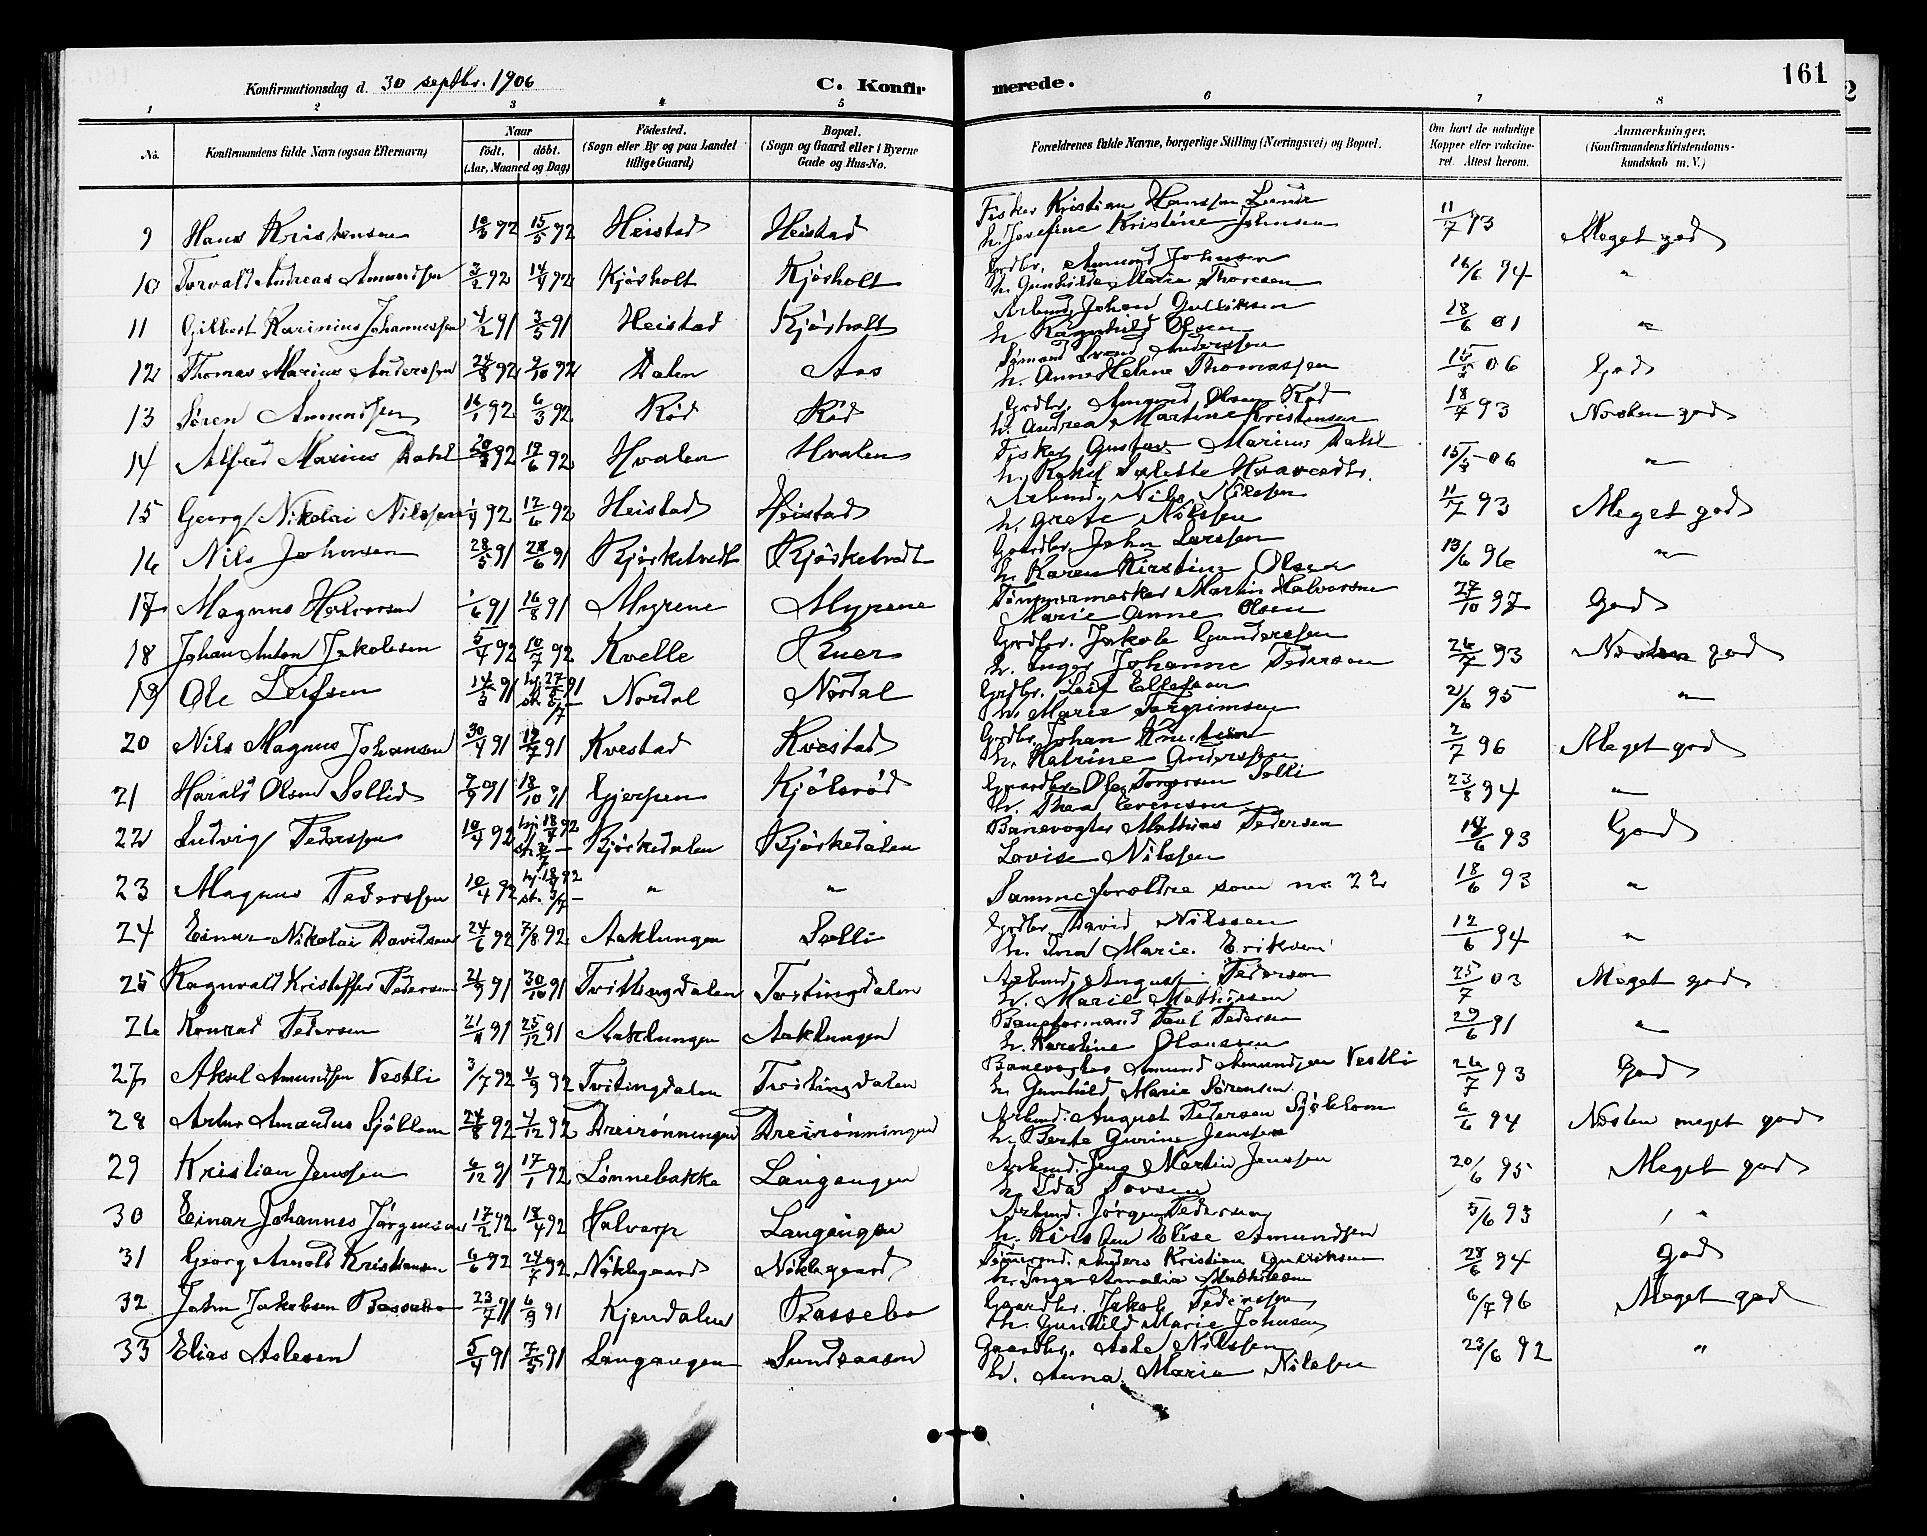 161
Konfirmationsdag d. 30 septbr. 1906 C. Konfirmerede.
1 2 3 4 5 6 7 8
No. Konfirmandens fulde Navn (ogsaa Efternavn) Naar födt. döbt. (Aar, Maaned og Dag) Födested. (Sogn eller By og paa Landet tillige Gaard) Bopæl. (Sogn og Gaard eller i Byerne Gade og Hus-No. Forældrenes fulde Navne, borgerlige Stilling (Næringsvei) og Bopæl. Om havt de naturlige Kopper eller vaccineret. Attest herom. Anmærkninger. (Konfirmandens Kristendomskundskab m. V.)
9 Hans Kristensen 15/5 92 Heistad Heistad Fisker Kristian Hansen Lunde 11/7 93 Meget god
h. Josefine Kristine Johnsen
10 Torvald Andreas Amundsen 3/2 92 14/4 92 Kjösholt Kjösholt Grdbr. Amund Johnsen 16/6 94 "
h. Gunhilde Marie Thoresen
11 Gilbert Karinius Johannessen 4/2 91 3/5 91 Heistad Kjösholt Arbmd. Johan Gulliksen 18/6 01 "
h. Ragnhild Olsen
12 Thomas Marius Anderssen 24/8 92 9/10 92 Dalen Aas Sømand Svend Anderssen 15/ 06 God
h. Anne Helene Thomassen
13 Sören Amundsen 16/1 92 6/3 92 Röd Röd Grdbr. Amund Olsen Röd 18/7 93 Næsten god
h. Andrea Martine Kristensen
14 Alfred Marius Dahl 92 19/6 92 Hvalen Hvalen Fisker Gustav Marius Dahl 15/ 06 "
h. Rakel
15 Georg Nikolai Nilssen 1/4 92 12/6 92 Heistad Heistad Arbmd. Nils Nilssen 11/7 93 Meget god
h. Grete Nilssen
16 Nils Johnsen 28/5 91 28/6 91 Bjørketvedt Bjørketvedt Gaardbr. John Larssen 13/6 96 "
h. Karen Kirstine Olsen
17 Magnus Halvorsen 1/6 91 16/8 91 Myrene Myrene Tømmermester Martin Halvorsen 27/10 97 God
Marie Anne Olsen
18 Johan Anton Jakobsen 5/4 92 10/7 92 Kvelle Grdbr. Jakob Gunderssen 26/7 93 Næsten god
h. Inger Johanne Pedersen
19 Ole Leifsen 14/3 91 hj. 27/ 91 st. 5/7 - Nordal Nordal Grdbr. Leif Ellefsen 21/6 95 "
h. Marie Torgrimsen
20 Nils Magnus Johansen 30/4 91 19/7 91 Kvestad Kvestad Grdbr. Johan Knutsen 2/7 96 Meget god
h. Katrine Anderssen
21 Harald Olsen Sollid 91 18/10 91 Gjerpen Kjölsröd Gaardbr. Ole Torgersen Solli 23/8 94 "
h. Thea Evensen
22 Ludvig Pederssen 10/4 92 hj. 18/ 92 st. 3/7 - Bjørkedalen Bjørkedalen Banevogter Mathias Pedersen 18/6 93 God
Lovise Nilssen
23 Magnus Pederssen 10/4 92 hj. 18/ 92 st. 3/7 - " " Samme foreldre som no 22 18/6 93 "
24 Einar Nikolai Davidsen 24/6 92 7/8 92 Aaklungen Solli Grdbr. David Nilssen 12/6 94 "
h. Ina Marie
25 Ragnvald Kristoffer Pedersen 91 30/10 91 Tvittingdalen Tvitingdalen Arbmd. August Pedersen 25/7 03 Meget god
h. Marie Mathisen
26 Konrad Pedersen 21/11 91 25/12 91 Aaklungen Aaklungen Baneformand Paul Pedersen 29/6 91 "
h. Karoline Olaussen
27 Aksel Amundsen Vestli 3/7 92 4/9 92 Tvitingdalen Tvitingdalen Banevogter Amund Amundsen Vestli 26/7 93 God
h. Gunhild Marie Sørensen
28 Artur Amandus Sjöblom 24/8 92 4/12 92 Dreirönningen Dreirönningen Arbmd. August Pedersen Sjöblom 6/6 94 Næsten meget god
h. Berte Gurine Jenssen
29 Kristian Jenssen 6/12 91 17/1 92 Lönnebakke Langangen Arbmd. Jens Martin Jenssen 20/6 95 Meget god
h. Ida Tovsen
30 Einar Johannes Jörgensen 17/2 92 18/4 92 Halvarp Langangen Arbmd. Jørgen Pedersen 5/6 93 "
h. Kirstine Elise Amundsen
31 Georg Arnold Kristiansen 6/6 92 24/7 92 Nöklegaard Nöklegaard Tömmermd. Anders Kristian Gulliksen 28/6 94 God
h. Inger Amalia Mathisen
32 John Jakobsen Bassebo 23/7 91 6/9 91 Kjendalen Bassebo Gaardbr. Jakob Pedersen 6/7 96 Meget god
h. Gunhild Marie Johnsen
33 Elias Aslesen 5/4 91 7/5 91 Langangen Sundsaasen Gaardbr. Asle Nilssen 23/6 92 "
h. Anna Maria Nilssen